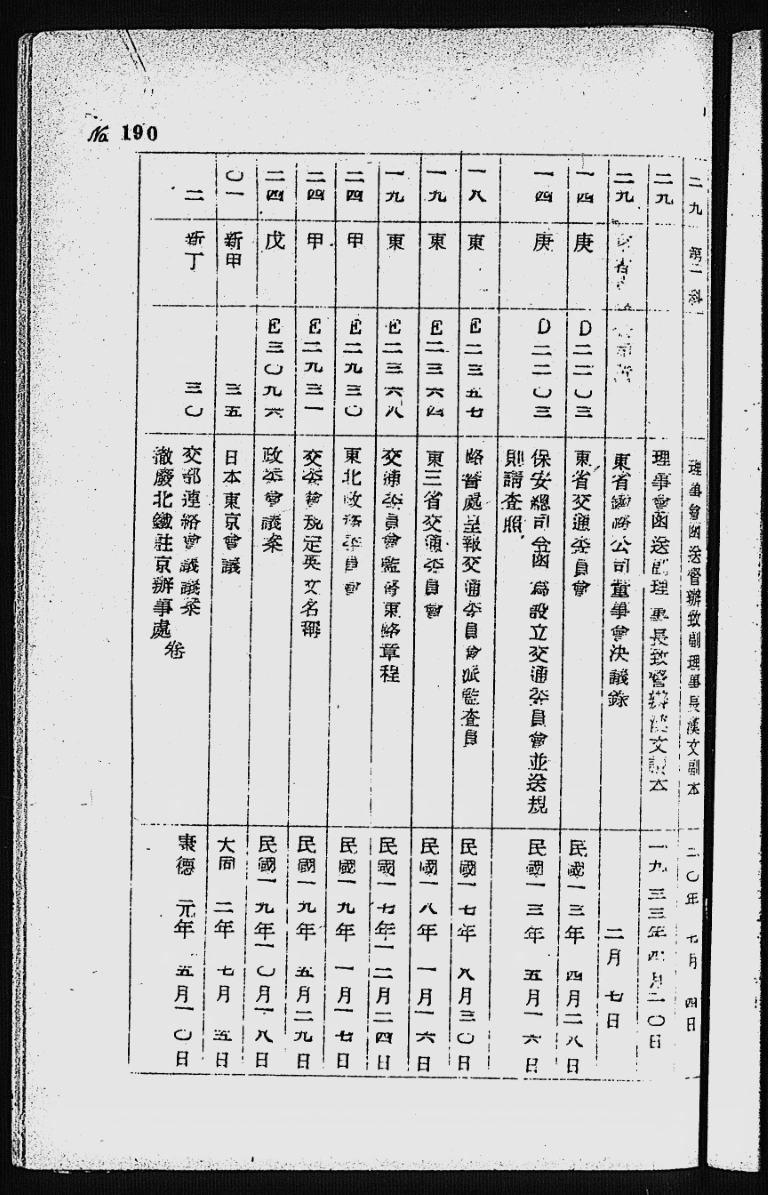 No. 190
二九 第二科 理事會函送督辦致副理事長漢文副本 二〇年 七月 四日
二九 理事會函送副理事長致督辦漢文副本 一九三三年四月二〇日
二九 東省鐵路公司董事會決議錄 二月 七日
一四 庚 D二二〇三 東省交通委員會 民國一三年 四月二八日
一四 庚 D二二〇三 保安總司令函 為設立交通委員會並送規
則請查照 民國一三年 五月一六日
一八 東 E二三五七 路警處呈報交通委員會派監查員 民國一七年 八月三〇日
一九 東 E二三六四 東三省交通委員會 民國一八年 一月一六日
一九 東 E二三六八 交通委員會監督東路章程 民國一七年一二月二四日
二四 甲 E二九三〇 東北政務委員會 民國一九年 一月一七日
二四 甲 E二九三一 交委會規定英文名稱 民國一九年 五月二九日
二四 戊 E三〇九六 政委會議案 民國一九年一〇月一八日
〇一 新甲 三五 日本東京會議 大同 二年 七月 五日
二 新丁 三〇 交部連絡會議議案 康德 元年 五月一〇日
撤廢北鐵駐京辦事處卷